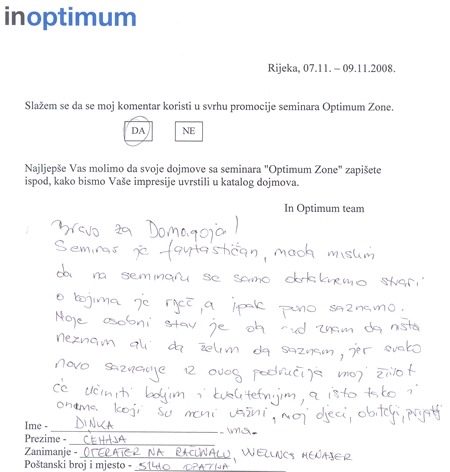 inoptimum
Rijeka, 07.11. – 09.11.2008.
Slažem se da se moj komentar koristi u svrhu promocije seminara Optimum Zone.
DA NE
Najljepše Vas molimo da svoje dojmove sa seminara "Optimum Zone" zapišete
ispod, kako bismo Vaše impresije uvrstili u katalog dojmova.
In Optimum team
Bravo za Domagoja!
Seminar je fantastičan, mada mislim
da na seminaru se samo dotaknemo stvari
o kojima je riječ, a ipak puno saznamo.
Moje osobni stav je da znam da ništa
neznam ali da želim da saznam, jer svako
novo saznanje iz ovog područja moj život
će učiniti boljim i kvalitetnijim, a isto tako i
onima koji su meni važni, moj djeci, obitelji, prijatelji
Ime - DINKA
Prezime - ČEHAJA
Zanimanje - OPERATER NA RAČUNALU, WELLNES MENAĐER
Poštanski broj i mjesto - 51410 OPATIJA